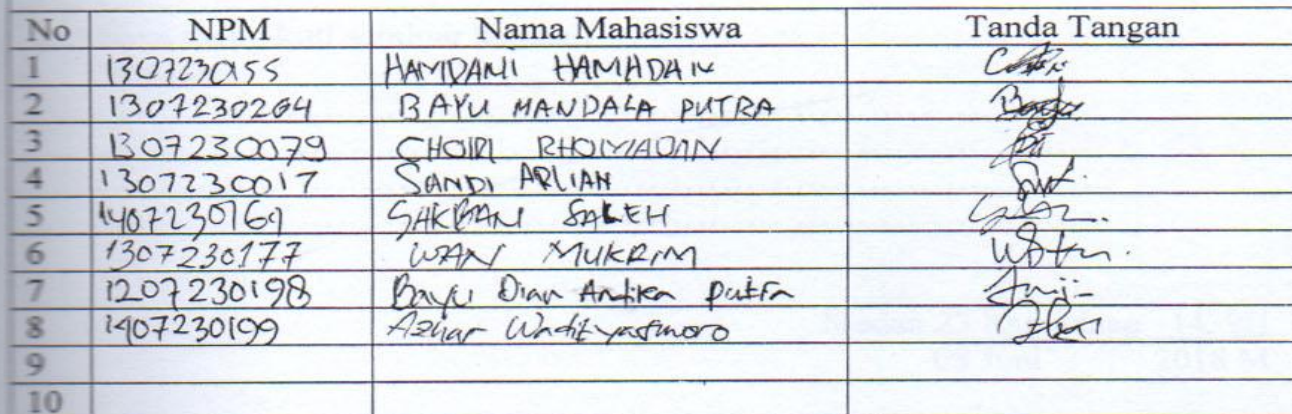 No NPM Nama Mahasiswa Tanda Tangan
1 1307230155 HAMDANI HAMADAN
2 1307230264 BAYU MANDALA PUTRA
3 1307230079 CHOIRI
4 1307230017 SANDI ARLIAN
5 1407230169 SAKBAN SALEH
6 1307230177 WAN MUKRIM
7 1207230198 Bayu Dian Andika putra
8 1407230199 Azhar
9
10